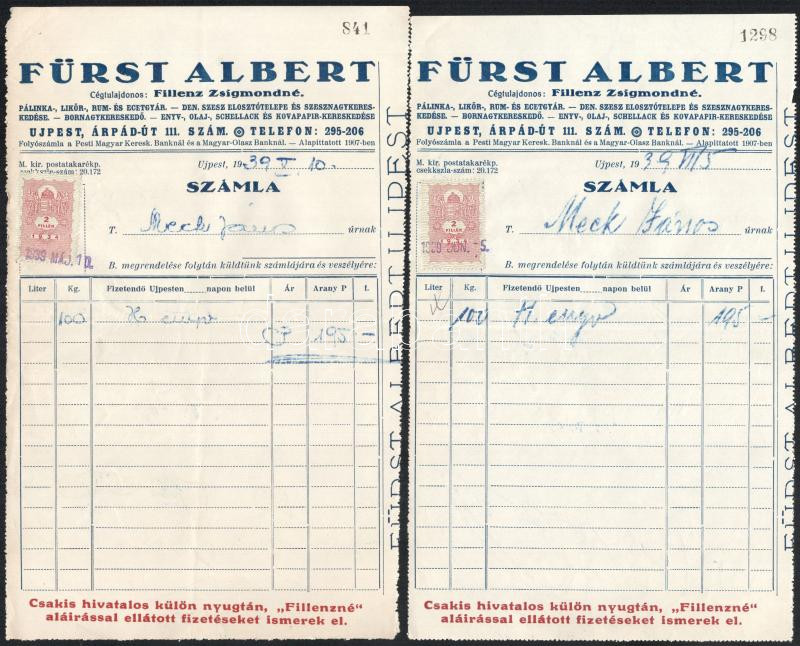 841
FÜRST ALBERT
Cégtulajdonos: Fillenz Zsigmondné.
PÁLINKA-, LIKŐR-, RUM- ÉS ECETGYÁR. — DEN. SZESZ ELOSZTÓTELEPE ÉS SZESZNAGYKERES-
KEDÉSE. — BORNAGYKERESKEDŐ. — ENYV-, OLAJ-, SCHELLACK ÉS KOVAPAPIR-KERESKEDÉSE
UJPEST, ÁRPÁD-ÚT 111. SZÁM. TELEFON: 295-206
Folyószámla a Pesti Magyar Keresk. Banknál és a Magyar-Olasz Banknál. — Alapittatott 1907-ben
M. kir. postatakarékp.
csekkszla-szám: 20.172
Ujpest, 1939 V. 10.
SZÁMLA
2
FILLÉR
1934
T. Meck János úrnak
1939 MÁJ. 10.
B. megrendelése folytán küldtünk számlájára és veszélyére:
Liter Kg. Fizetendő Ujpesten napon belül Ár Arany P f.
100 P 195 —
FÜRST ALBERT UJPEST
Csakis hivatalos külön nyugtán, „Fillenzné“
aláirással ellátott fizetéseket ismerek el.
1298
FÜRST ALBERT
Cégtulajdonos: Fillenz Zsigmondné.
PÁLINKA-, LIKŐR-, RUM- ÉS ECETGYÁR. — DEN. SZESZ ELOSZTÓTELEPE ÉS SZESZNAGYKERES-
KEDÉSE. — BORNAGYKERESKEDŐ. — ENYV-, OLAJ-, SCHELLACK ÉS KOVAPAPIR-KERESKEDÉSE
UJPEST, ÁRPÁD-ÚT 111. SZÁM. TELEFON: 295-206
Folyószámla a Pesti Magyar Keresk. Banknál és a Magyar-Olasz Banknál. — Alapittatott 1907-ben
M. kir. postatakarékp.
csekkszla-szám: 20.172
Ujpest, 1939
SZÁMLA
2
FILLÉR
1934
T. Meck János úrnak
1939 JUN. -5.
B. megrendelése folytán küldtünk számlájára és veszélyére:
Liter Kg. Fizetendő Ujpesten napon belül Ár Arany P f.
100 H enyv 195 —
FÜRST ALBERT UJPEST
Csakis hivatalos külön nyugtán, „Fillenzné“
aláirással ellátott fizetéseket ismerek el.